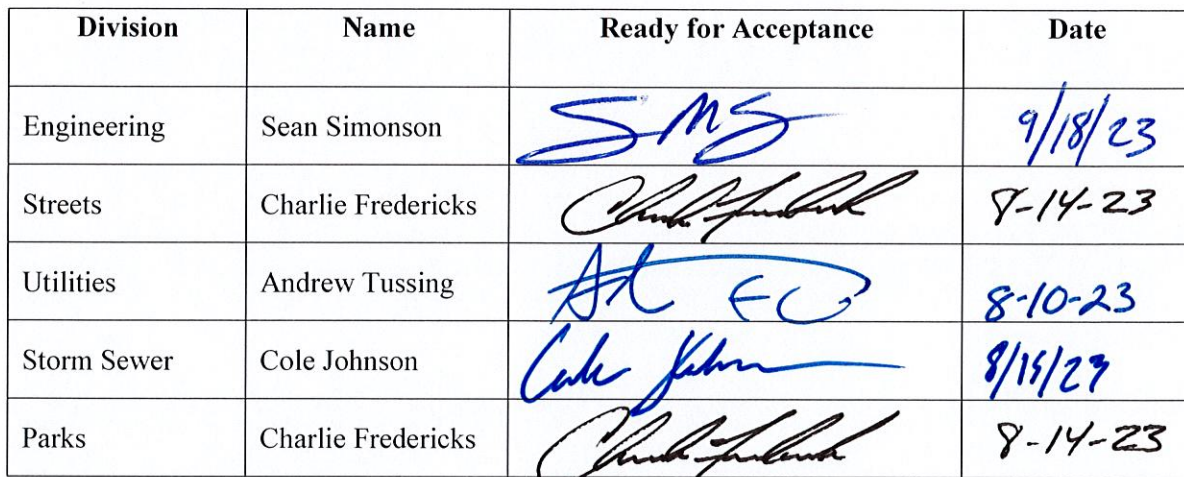 Division Name Ready for Acceptance Date
Engineering Sean Simonson SMS 9/18/23
Streets Charlie Fredericks 8-14-23
Utilities Andrew Tussing 8-10-23
Storm Sewer Cole Johnson Cole Johnson 8/15/23
Parks Charlie Fredericks 8-14-23